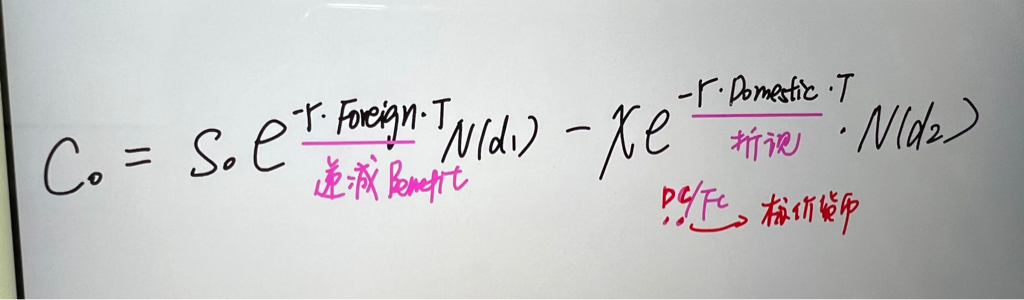 C₀ = S₀ e^{-r·Foreign·T} N(d₁) - Xe^{-r·Domestic·T} · N(d₂)
递减 Benefit 折现
DC/FC → 标价货币